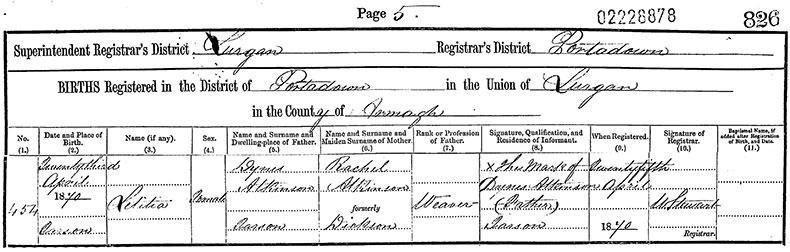 Page 5.
02228878
826
Superintendent Registrar's District Lurgan Registrar's District Portadown
BIRTHS Registered in the District of Portadown in the Union of Lurgan
in the County of Armagh
No. Date and Place of Birth. Name (if any). Sex. Name and Surname and Dwelling-place of Father. Name and Surname and Maiden Surname of Mother. Rank or Profession of Father. Signature, Qualification, and Residence of Informant. When Registered. Signature of Registrar. Baptismal Name, if added after Registration of Birth, and Date.
(1.) (2.) (3.) (4.) (5.) (6.) (7.) (8.) (9.) (10.) (11.)
Twenty third Rachel x The Mark of Twenty fifth
April Atkinson Atkinson Atkinson April
1870
454 Letitia Female formerly Weaver (Father) W Stewart
Dickson 1870 Registrar.